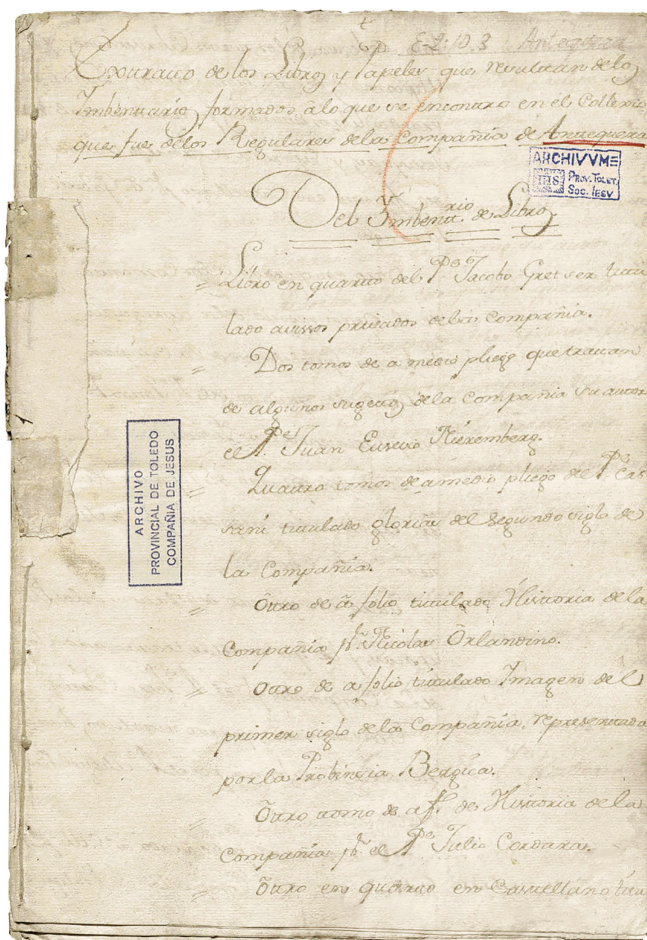 E-2: 10, 3 Antequera
Extracto de los Libros y Papeles que resultan de los
Imbentarios formados a lo que se encontro en el Collexio
que fue de los Regulares de la Compañia de Antequera
ARCHIVVM
IHS PROV. TOLET.
SOC. IESV
Del Imbentario de Libros
Libro en quarto del Pe Jacobo Gretser titu
lado avissos privados de la Compañia.
Dos tomos de a medio pliego que tratan
de algunos sugetos de la Compañia su autor
el Pe Juan Eusevio Nieremberg.
Quatro tomos de a medio pliego del Pe Cas
sini titulado glorias del segundo siglo de
la Compañia.
Otro de a folio titulado Historia de la
Compañia pr Nicolas Orlandino.
Otro de a folio titulado Imagen del
primer siglo de la Compañia, representada
por la Probincia Bergica.
Otro tomo de a f. de Historia de la
Compañia pr el Pe Julio Cordara.
Otro en quarto en Castellano titu
ARCHIVO
PROVINCIAL DE TOLEDO
COMPAÑIA DE JESUS